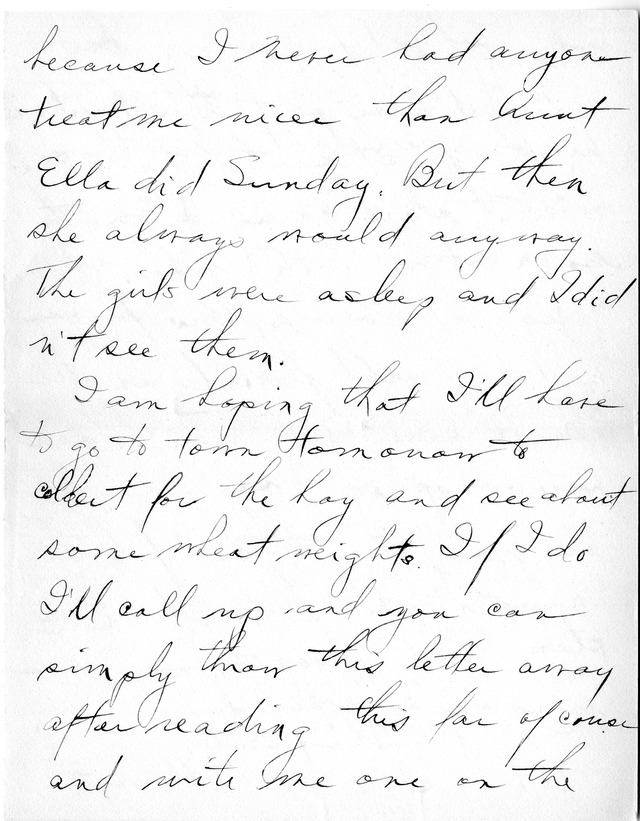 because I never had anyone
treat me nicer than Aunt
Ella did Sunday. But then
she always would anyway.
The girls were asleep and I did
n't see them.
I am hoping that I'll have
to go to town tomorrow to
collect for the hay and see about
some wheat weights. If I do
I'll call up and you can
simply throw this letter away
after reading this far of course
and write me one on the